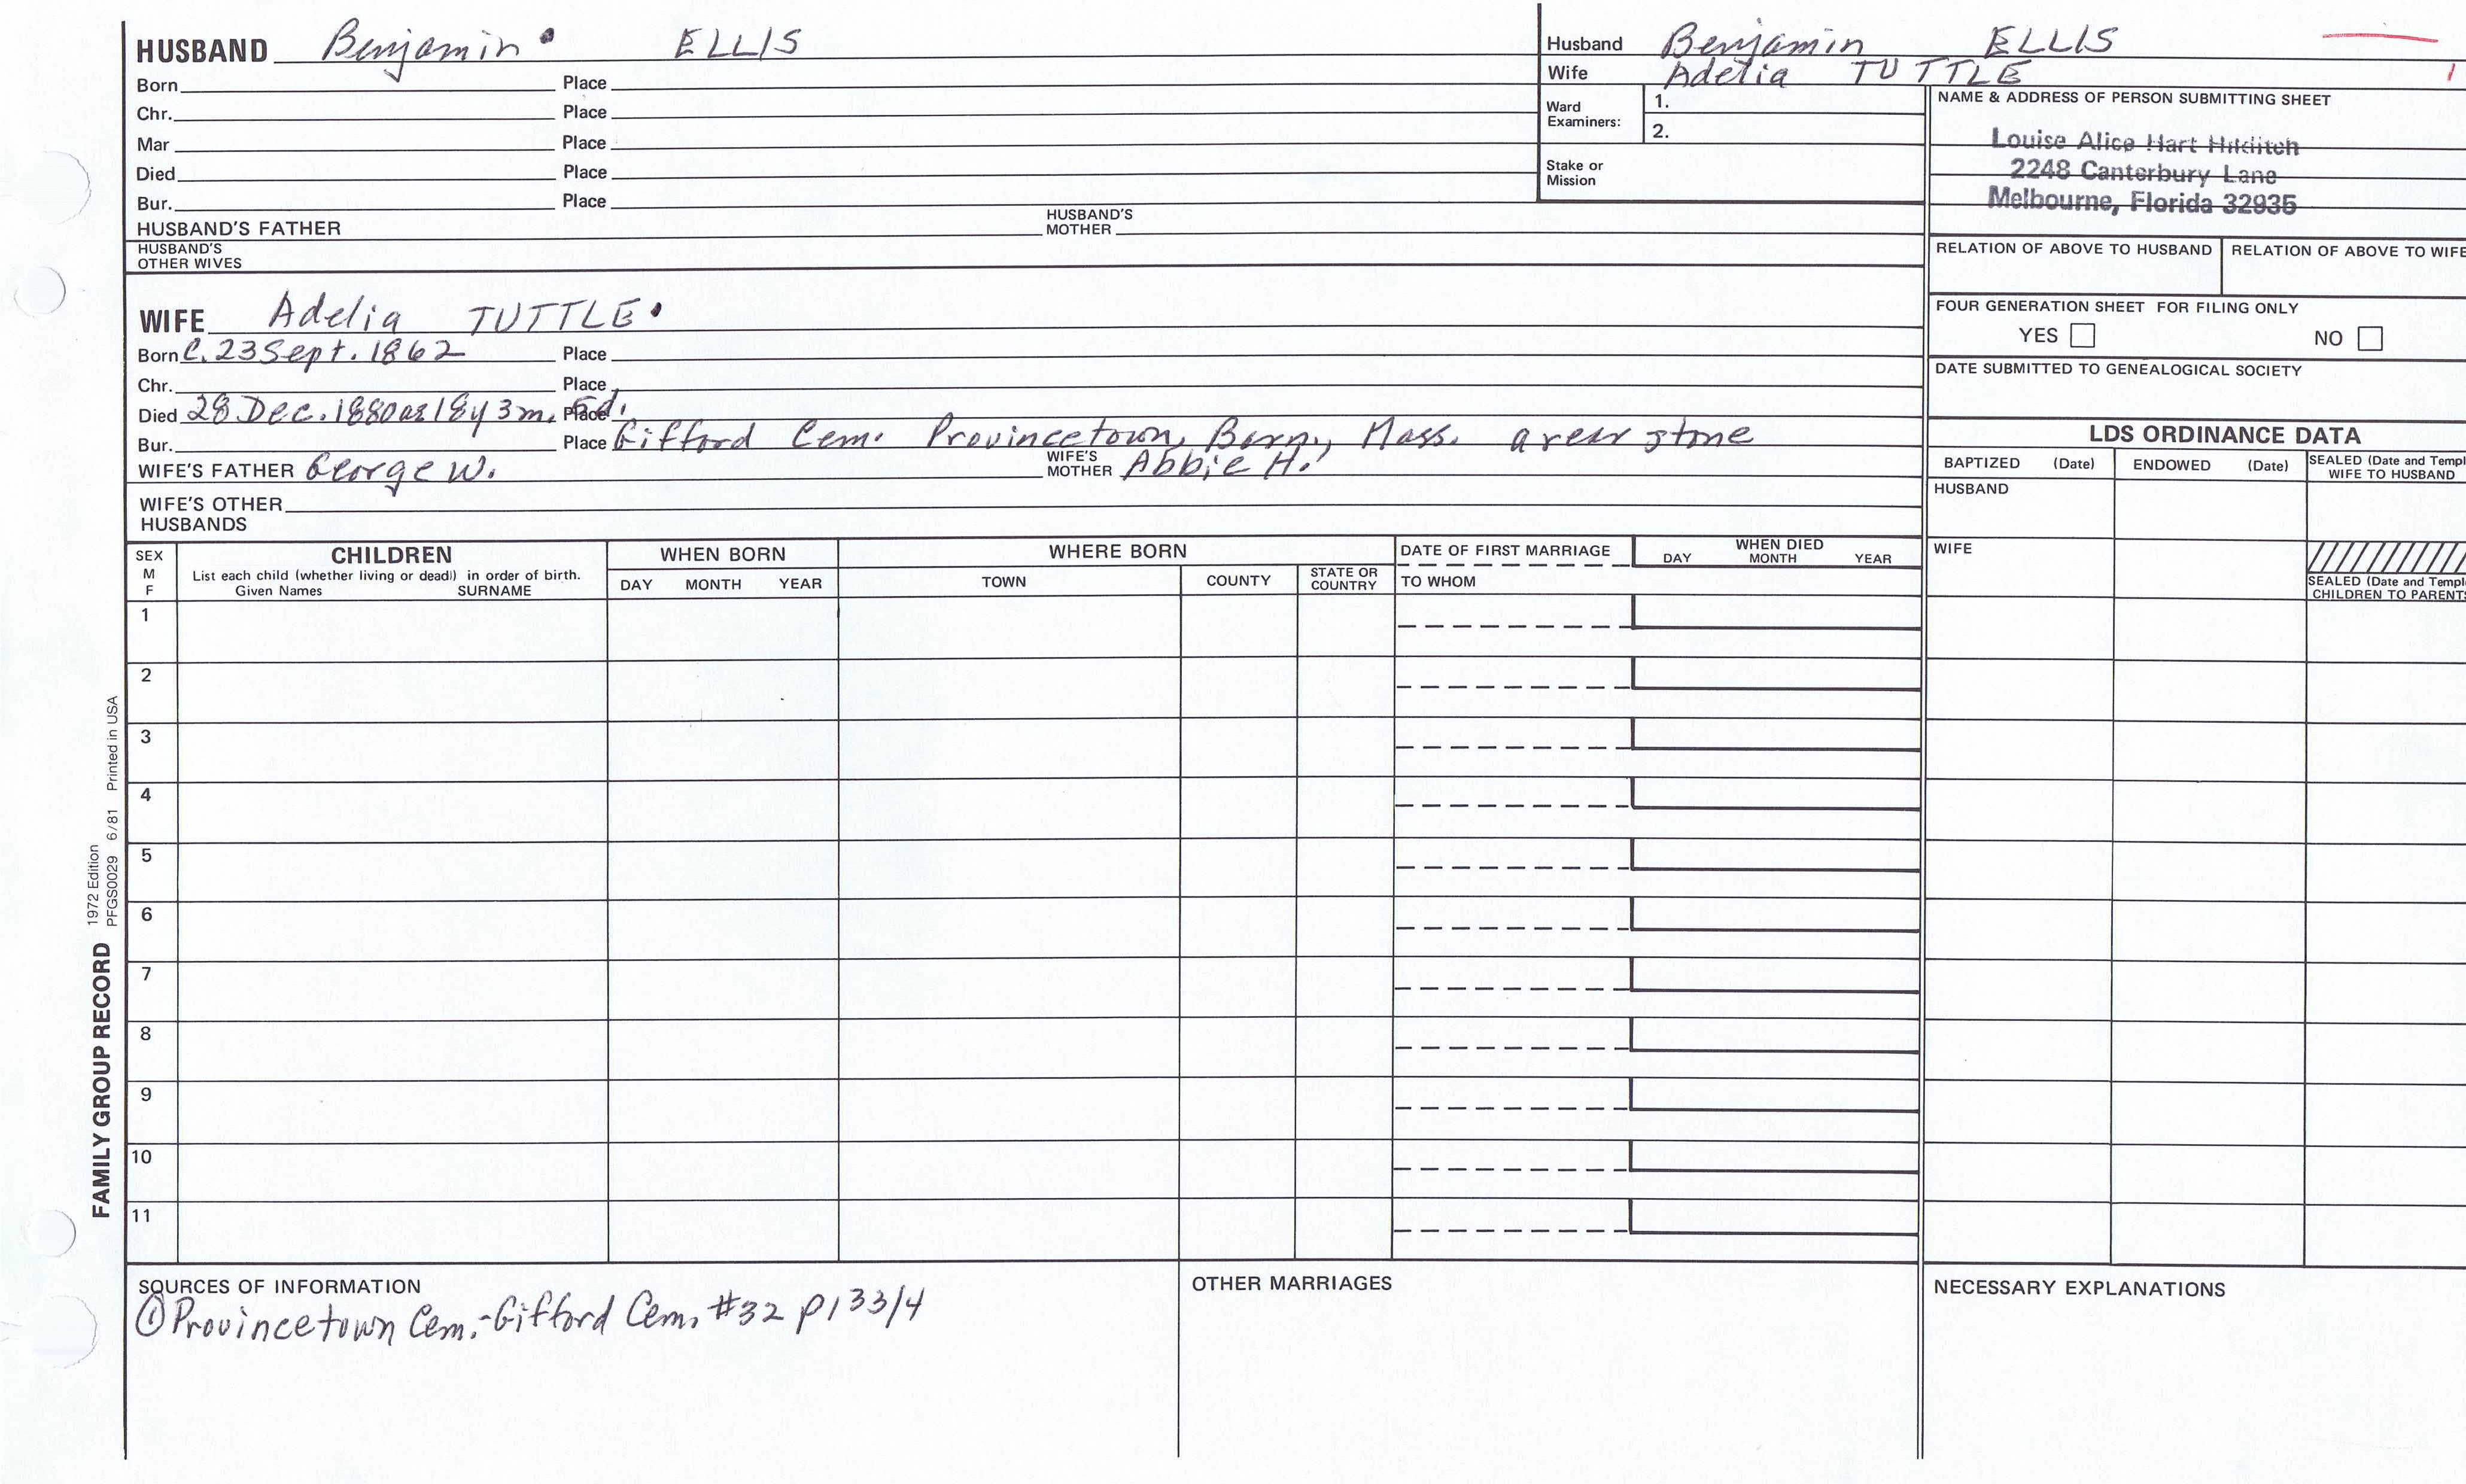 HUSBAND Benjamin ELLIS
Born Place
Chr. Place
Mar Place
Died Place
Bur. Place
HUSBAND'S FATHER HUSBAND'S MOTHER
HUSBAND'S OTHER WIVES
WIFE Adelia TUTTLE
Born C. 23 Sept. 1862 Place
Chr. Place
Died 28 Dec. 1880 ae 18y 3m. 5d. Place
Bur. Place Gifford Cem. Provincetown, Barn., Mass. a rear stone
WIFE'S FATHER George W. WIFE'S MOTHER Abbie H.
WIFE'S OTHER HUSBANDS
Husband Benjamin ELLIS
Wife Adelia TUTTLE
1
Ward Examiners: 1.
2.
Stake or Mission
NAME & ADDRESS OF PERSON SUBMITTING SHEET
Louise Alice Hart
2248 Canterbury Lane
Melbourne, Florida 32935
RELATION OF ABOVE TO HUSBAND RELATION OF ABOVE TO WIFE
FOUR GENERATION SHEET FOR FILING ONLY
YES NO
DATE SUBMITTED TO GENEALOGICAL SOCIETY
LDS ORDINANCE DATA
BAPTIZED (Date) ENDOWED (Date) SEALED (Date and Templ
WIFE TO HUSBAND
HUSBAND
WIFE
SEALED (Date and Templ
CHILDREN TO PARENTS
SEX M F
CHILDREN
List each child (whether living or dead) in order of birth.
Given Names SURNAME
WHEN BORN
DAY MONTH YEAR
WHERE BORN
TOWN COUNTY STATE OR COUNTRY
DATE OF FIRST MARRIAGE
TO WHOM
WHEN DIED
DAY MONTH YEAR
1
2
3
4
5
6
7
8
9
10
11
SOURCES OF INFORMATION
① Provincetown Cem.-Gifford Cem. #32 p133/4
OTHER MARRIAGES
NECESSARY EXPLANATIONS
FAMILY GROUP RECORD
1972 Edition
PFGS0029 6/81 Printed in USA